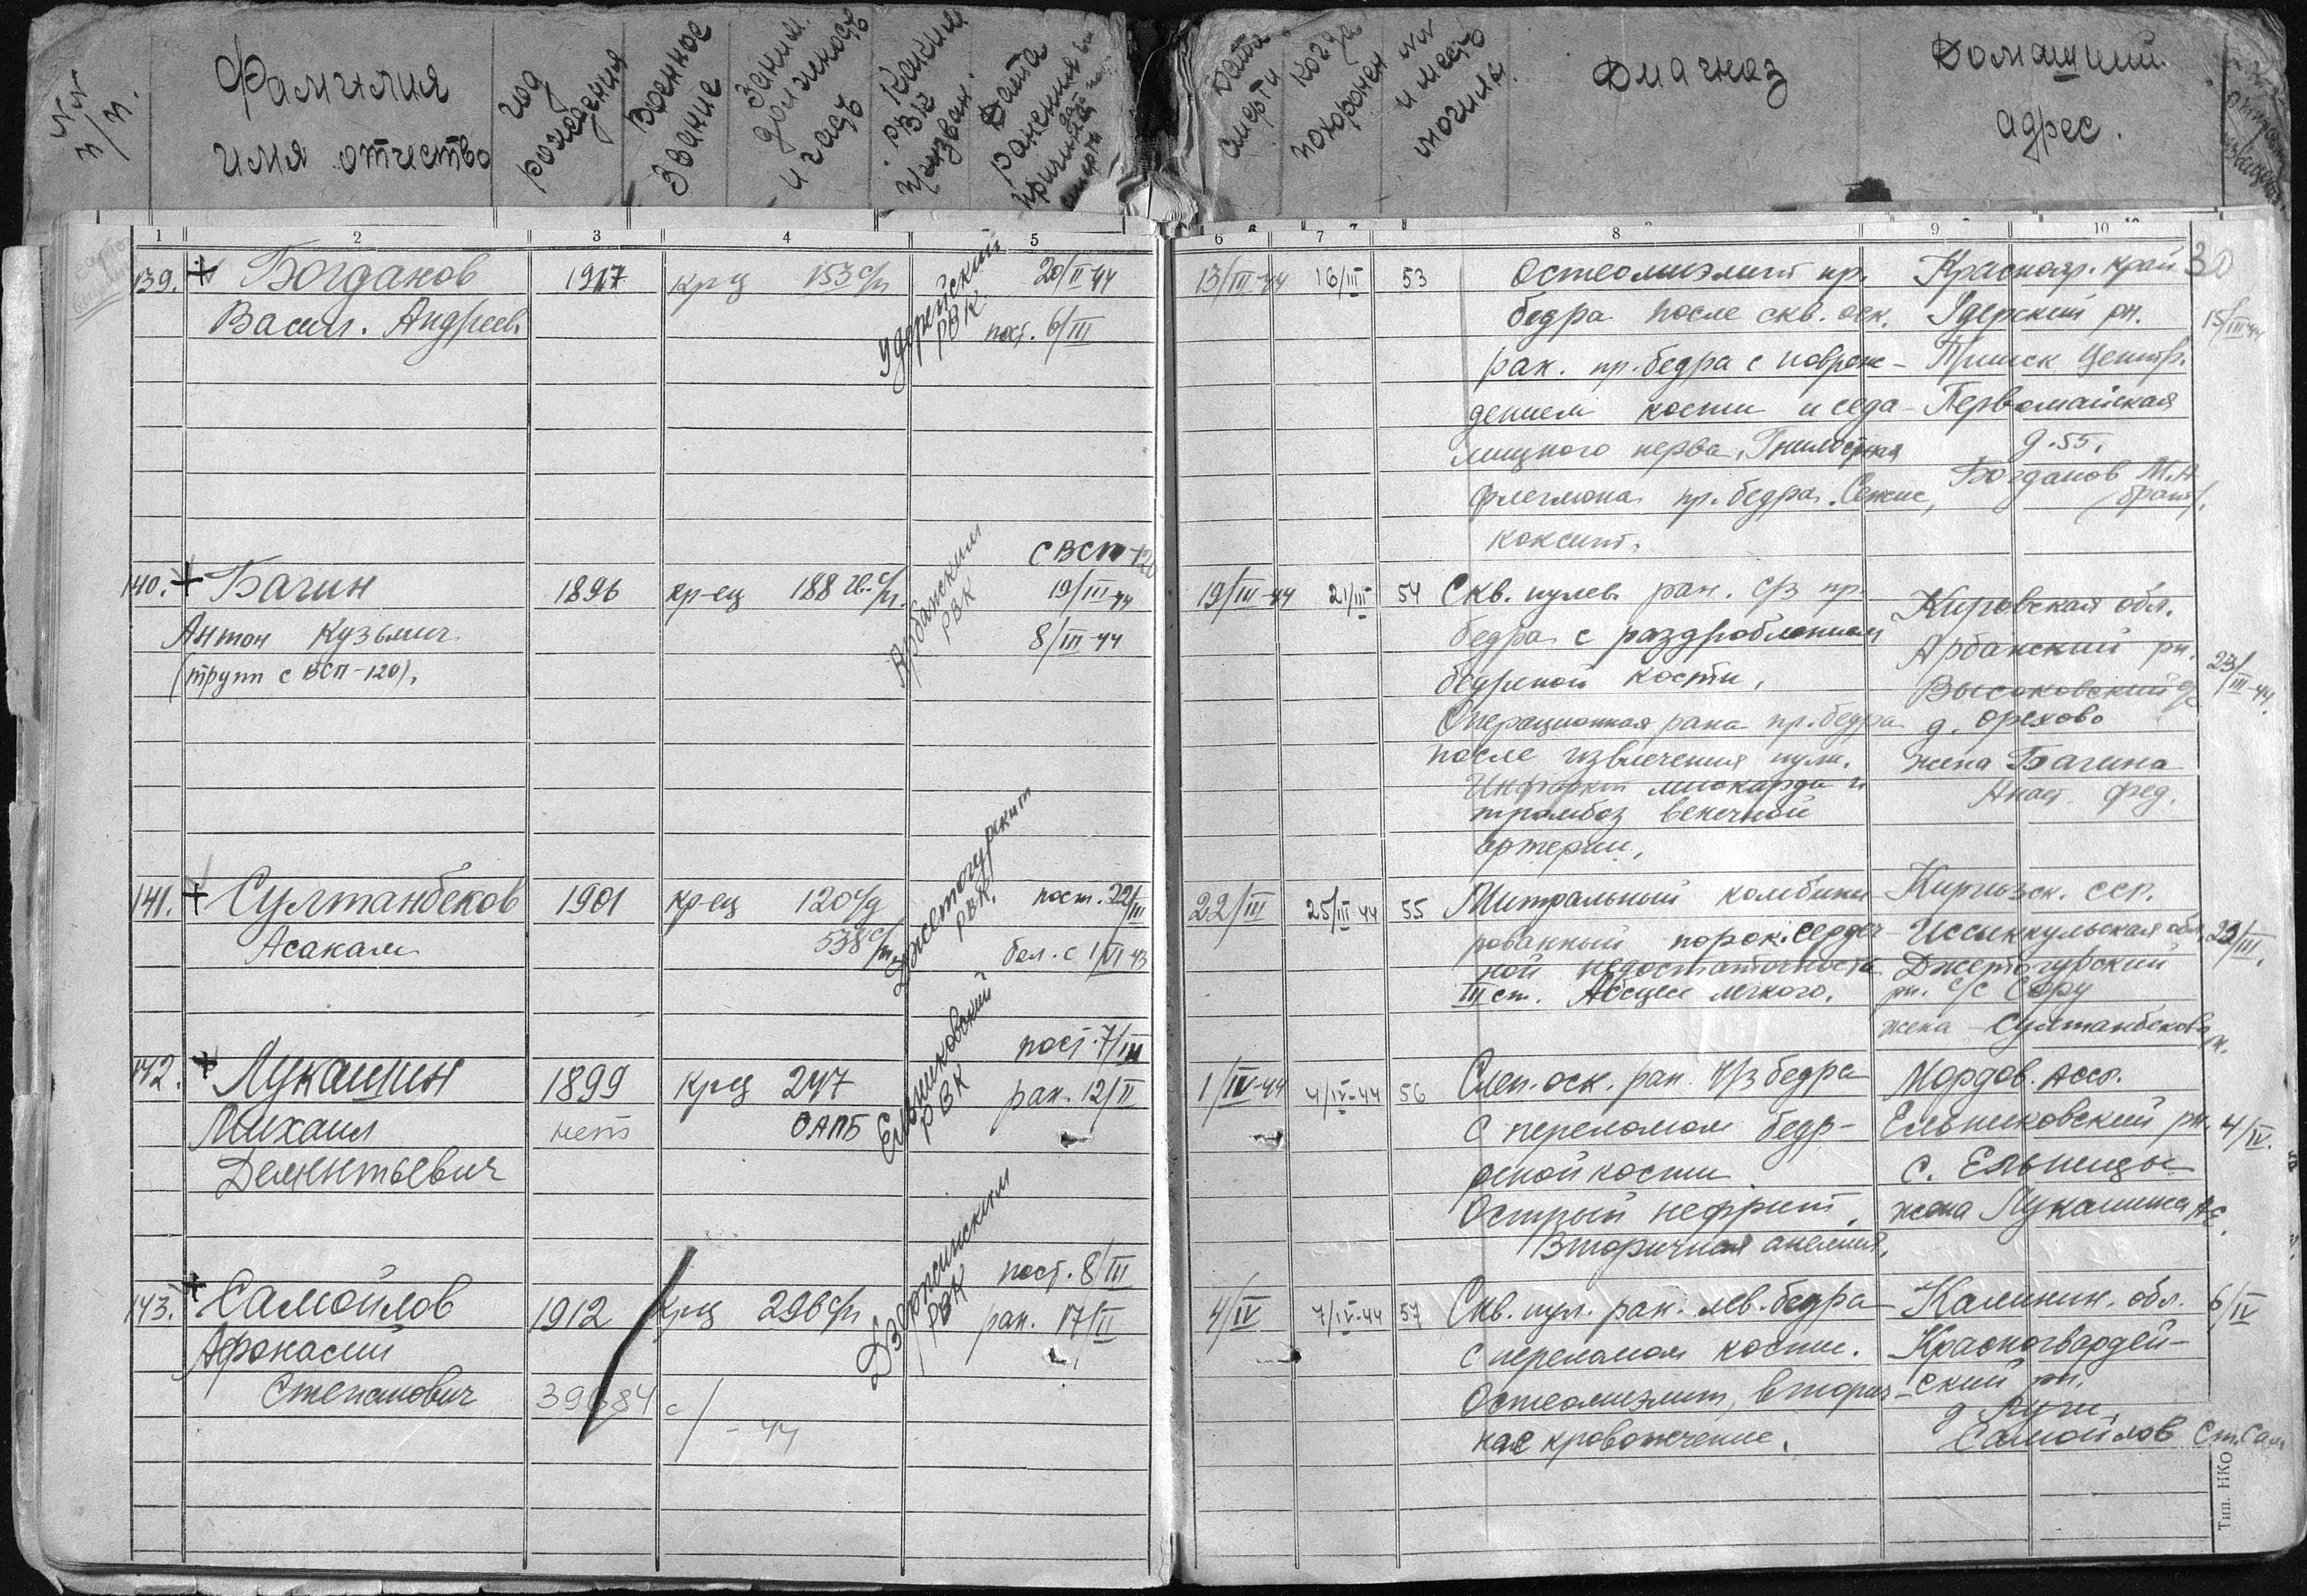 NN п/п.
Фамилия
имя отчество
год рождения
Военное звание
Заним. должность и часть
Каким РВК призван.
Дата ранения
Дата смерти
Когда похоронен
NN и место могилы.
Диагноз
Домашний
адрес.
1 2 3 4 5 6 7 8 9 10
139. Богданов 1917 кр-ц 153 с/п 20/II-44
Васил. Андреев. пост. 6/III
Удерейский РВК
13/III-44 16/III 53
Остеомиэлит пр.
бедра после скв. оск.
ран. пр. бедра с повреж-
дением кости и седа-
лищного нерва. Гнилостная
флегмона пр. бедра. Сепсис,
коксит.
Краснояр. край
Удерский рн.
Прииск Центр.
Первомайская
д. 55.
Богданов М.А
/брат/.
15/III-44
30
с ВСП-120
140. Багин 1896 кр-ец 188 гв. с/п. 19/III-44
Антон Кузьмич 8/III-44
(труп с ВСП-120).
Арбанским РВК
19/III-44 21/III 54
Скв. пулев. ран. с/з пр.
бедра с раздроблением
бедреной кости.
Операционная рана пр. бедра
после извлечения пули.
Инфаркт миокарда и
тромбоз венечной
артерии.
Кировская обл.
Арбанский рн.
Высоковский с/с
д. Орехово
жена Багина
Анаст. Фед.
23/III-44.
141. Султанбеков 1901 кр-ец 120 с/д пост. 22/III
Асакам 538 с/п. бол. с 1/VI-43
Джетогузским РВК.
22/III 25/III-44 55
Митральный комбини
рованный порок. сердеч
ной недостаточность
III ст. Абсцесс легкого.
Киргизск. сср.
Иссыккульская обл.
Джетогузский
рн. с/с Сару
жена - Султанбекова
23/III.
142. Лукашин 1899 кр-ц 247 пост. 7/III
Михаил нет ОАПБ ран. 12/II
Дементьевич
Ельниковский РВК
1/IV-44 4/IV-44 56
Слеп. оск. ран. н/з бедра
с переломом бедр-
реной кости
Острый нефрит.
Вторичная анемия.
Мордов. Асср.
Ельниковский рн.
с. Ельницы
жена Лукашина А.Е.
4/IV.
143. Самойлов 1912 кр-ц 296 с/п пост. 8/III
Афонасий ран. 17/II
Степанович 39684 с/ - 44
Дзержинским РВК
4/IV 7/IV-44 57
Скв. пул. ран. лев. бедра
с переломом кости.
Остеомиэлит, вторич-
ное кровотечение.
Калинин. обл.
Красногвардей-
ский рн.
д. Луги.
Самойлов Ст. Сам
6/IV
Тип. НКО